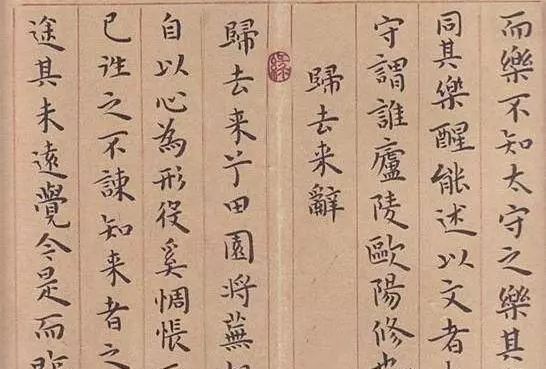 而樂不知太守之樂其
同其樂醒能述以文者
守謂誰廬陵歐陽修也
歸去来辭
歸去来兮田園將蕪
自以心為形役奚惆悵
已往之不諫知来者之
途其未遠覺今是而昨